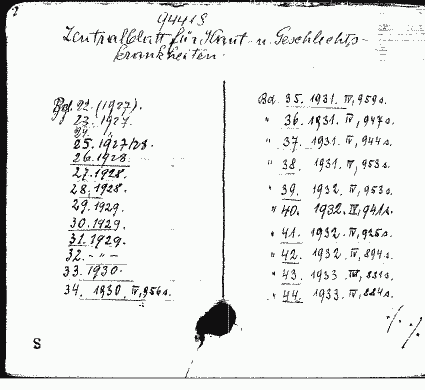 2
94418
Zentralblatt für Haut- u. Geschlechts-
krankheiten.
Bd. 22. (1927).
23. 1927
24. "
25. 1927/28.
26. 1928
27. 1928.
28. 1928.
29. 1929.
30. 1929.
31. 1929.
32. - " -
33. 1930.
34. 1930. IV, 956 s.
Bd. 35. 1931. IV, 959 s.
" 36. 1931. IV, 947 s.
" 37. 1931. IV, 944 s.
" 38. 1931. IV, 953 s.
" 39. 1932. IV, 953 s.
" 40. 1932. IV, 941 s.
" 41. 1932. IV, 925 s.
" 42. 1932. IV, 894 s.
" 43. 1933. IV, 831 s.
" 44. 1933. IV, 884 s.
S